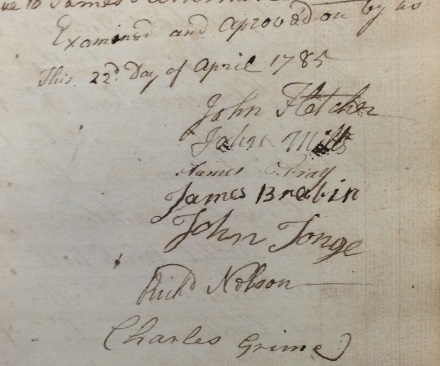 to James
Examined and aproved on by us
This 22d Day of April 1785
John Fletcher
John Mills
James Pray
James Brabin
John Tonge
Richd Nelson
Charles Grime